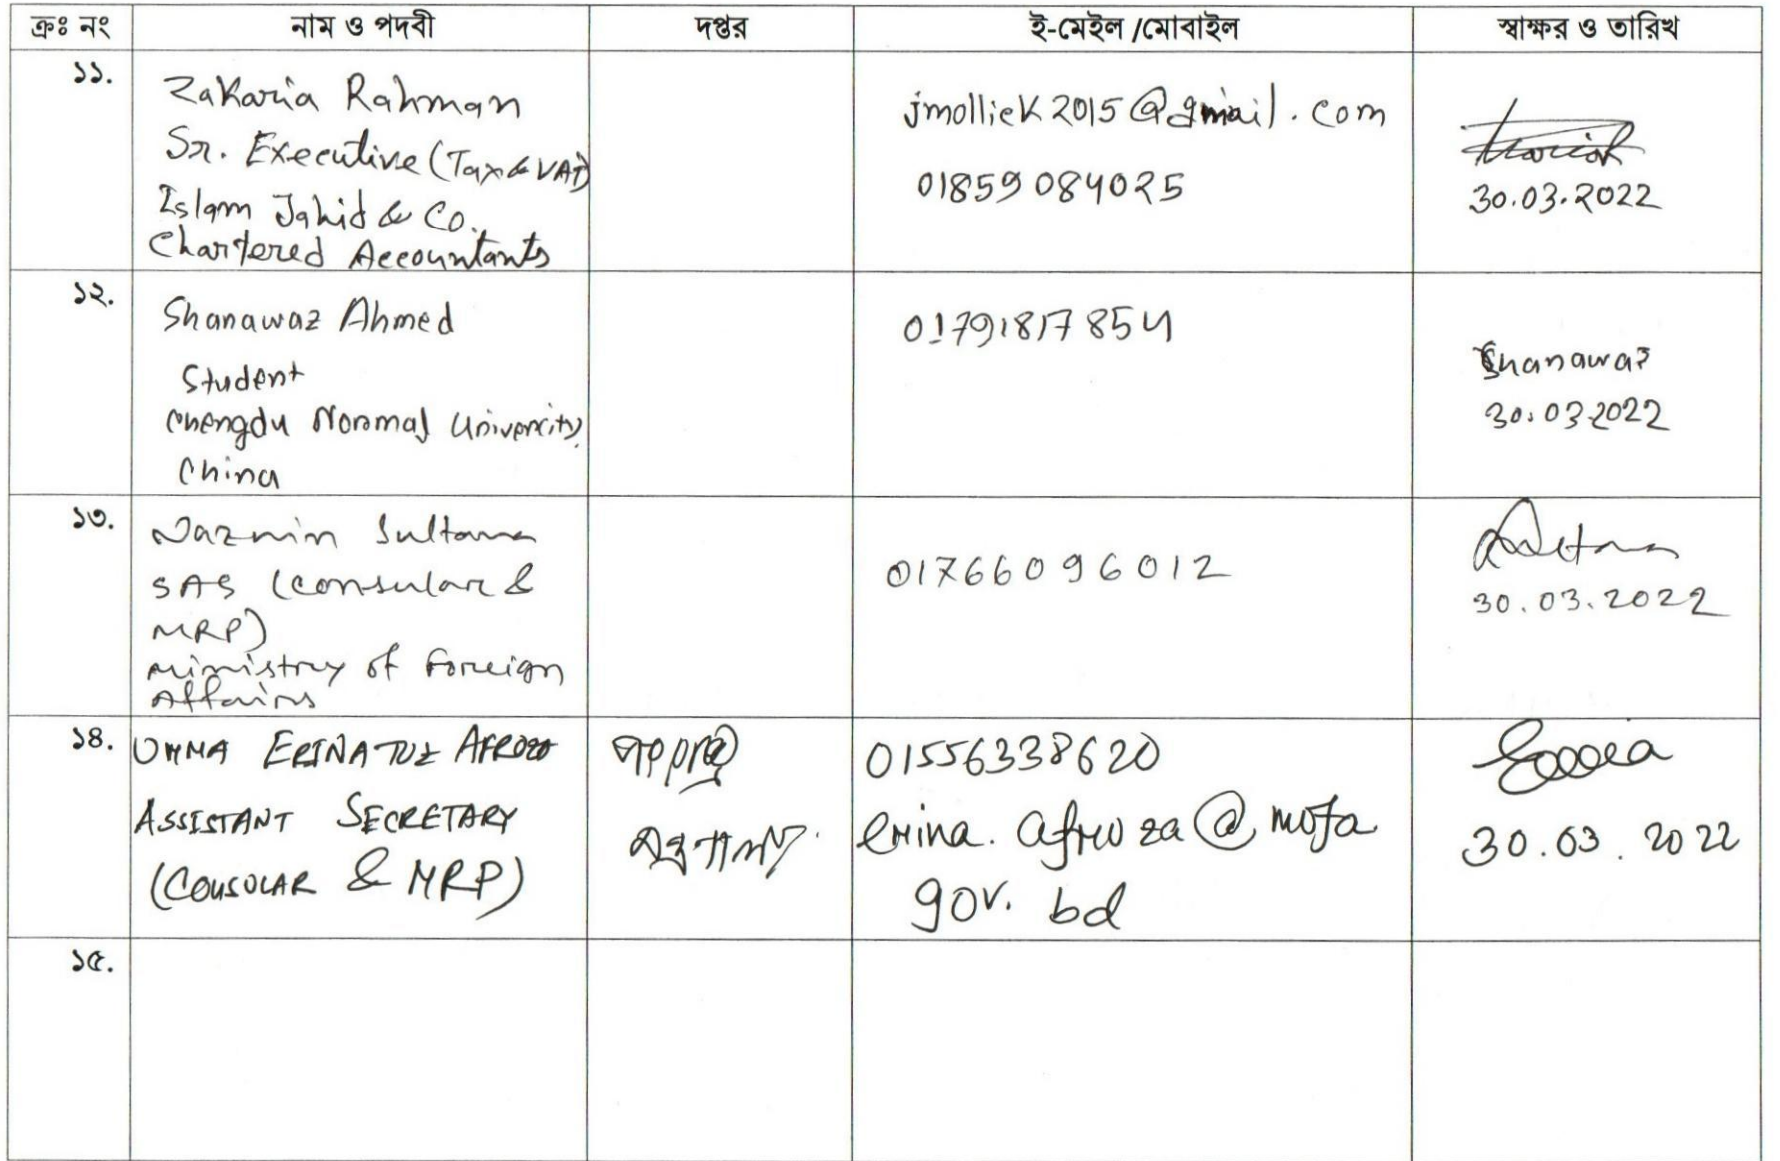 ক্রঃ নং নাম ও পদবী দপ্তর ই-মেইল /মোবাইল স্বাক্ষর ও তারিখ
১১.
Zakaria Rahman
Sr. Executive (Tax & VAT)
Islam Jahid & Co.
Chartered Accountants
jmolliek2015@gmail.com
01859084025
30.03.2022
১২.
Shanawaz Ahmed
Student
Chengdu Normal University,
China
01791817854
Shanawaz
30.03.2022
১৩.
Naznin Sultana
SAS (Consular &
MRP)
Ministry of Foreign
Affairs
01766096012
30.03.2022
১৪.
UMMA ERINATUZ AFROZA
ASSISTANT SECRETARY
(CONSULAR & MRP)
পররাষ্ট্র
মন্ত্রণালয়
01556338620
erina.afroza@mofa
gov.bd
30.03.2022
১৫.